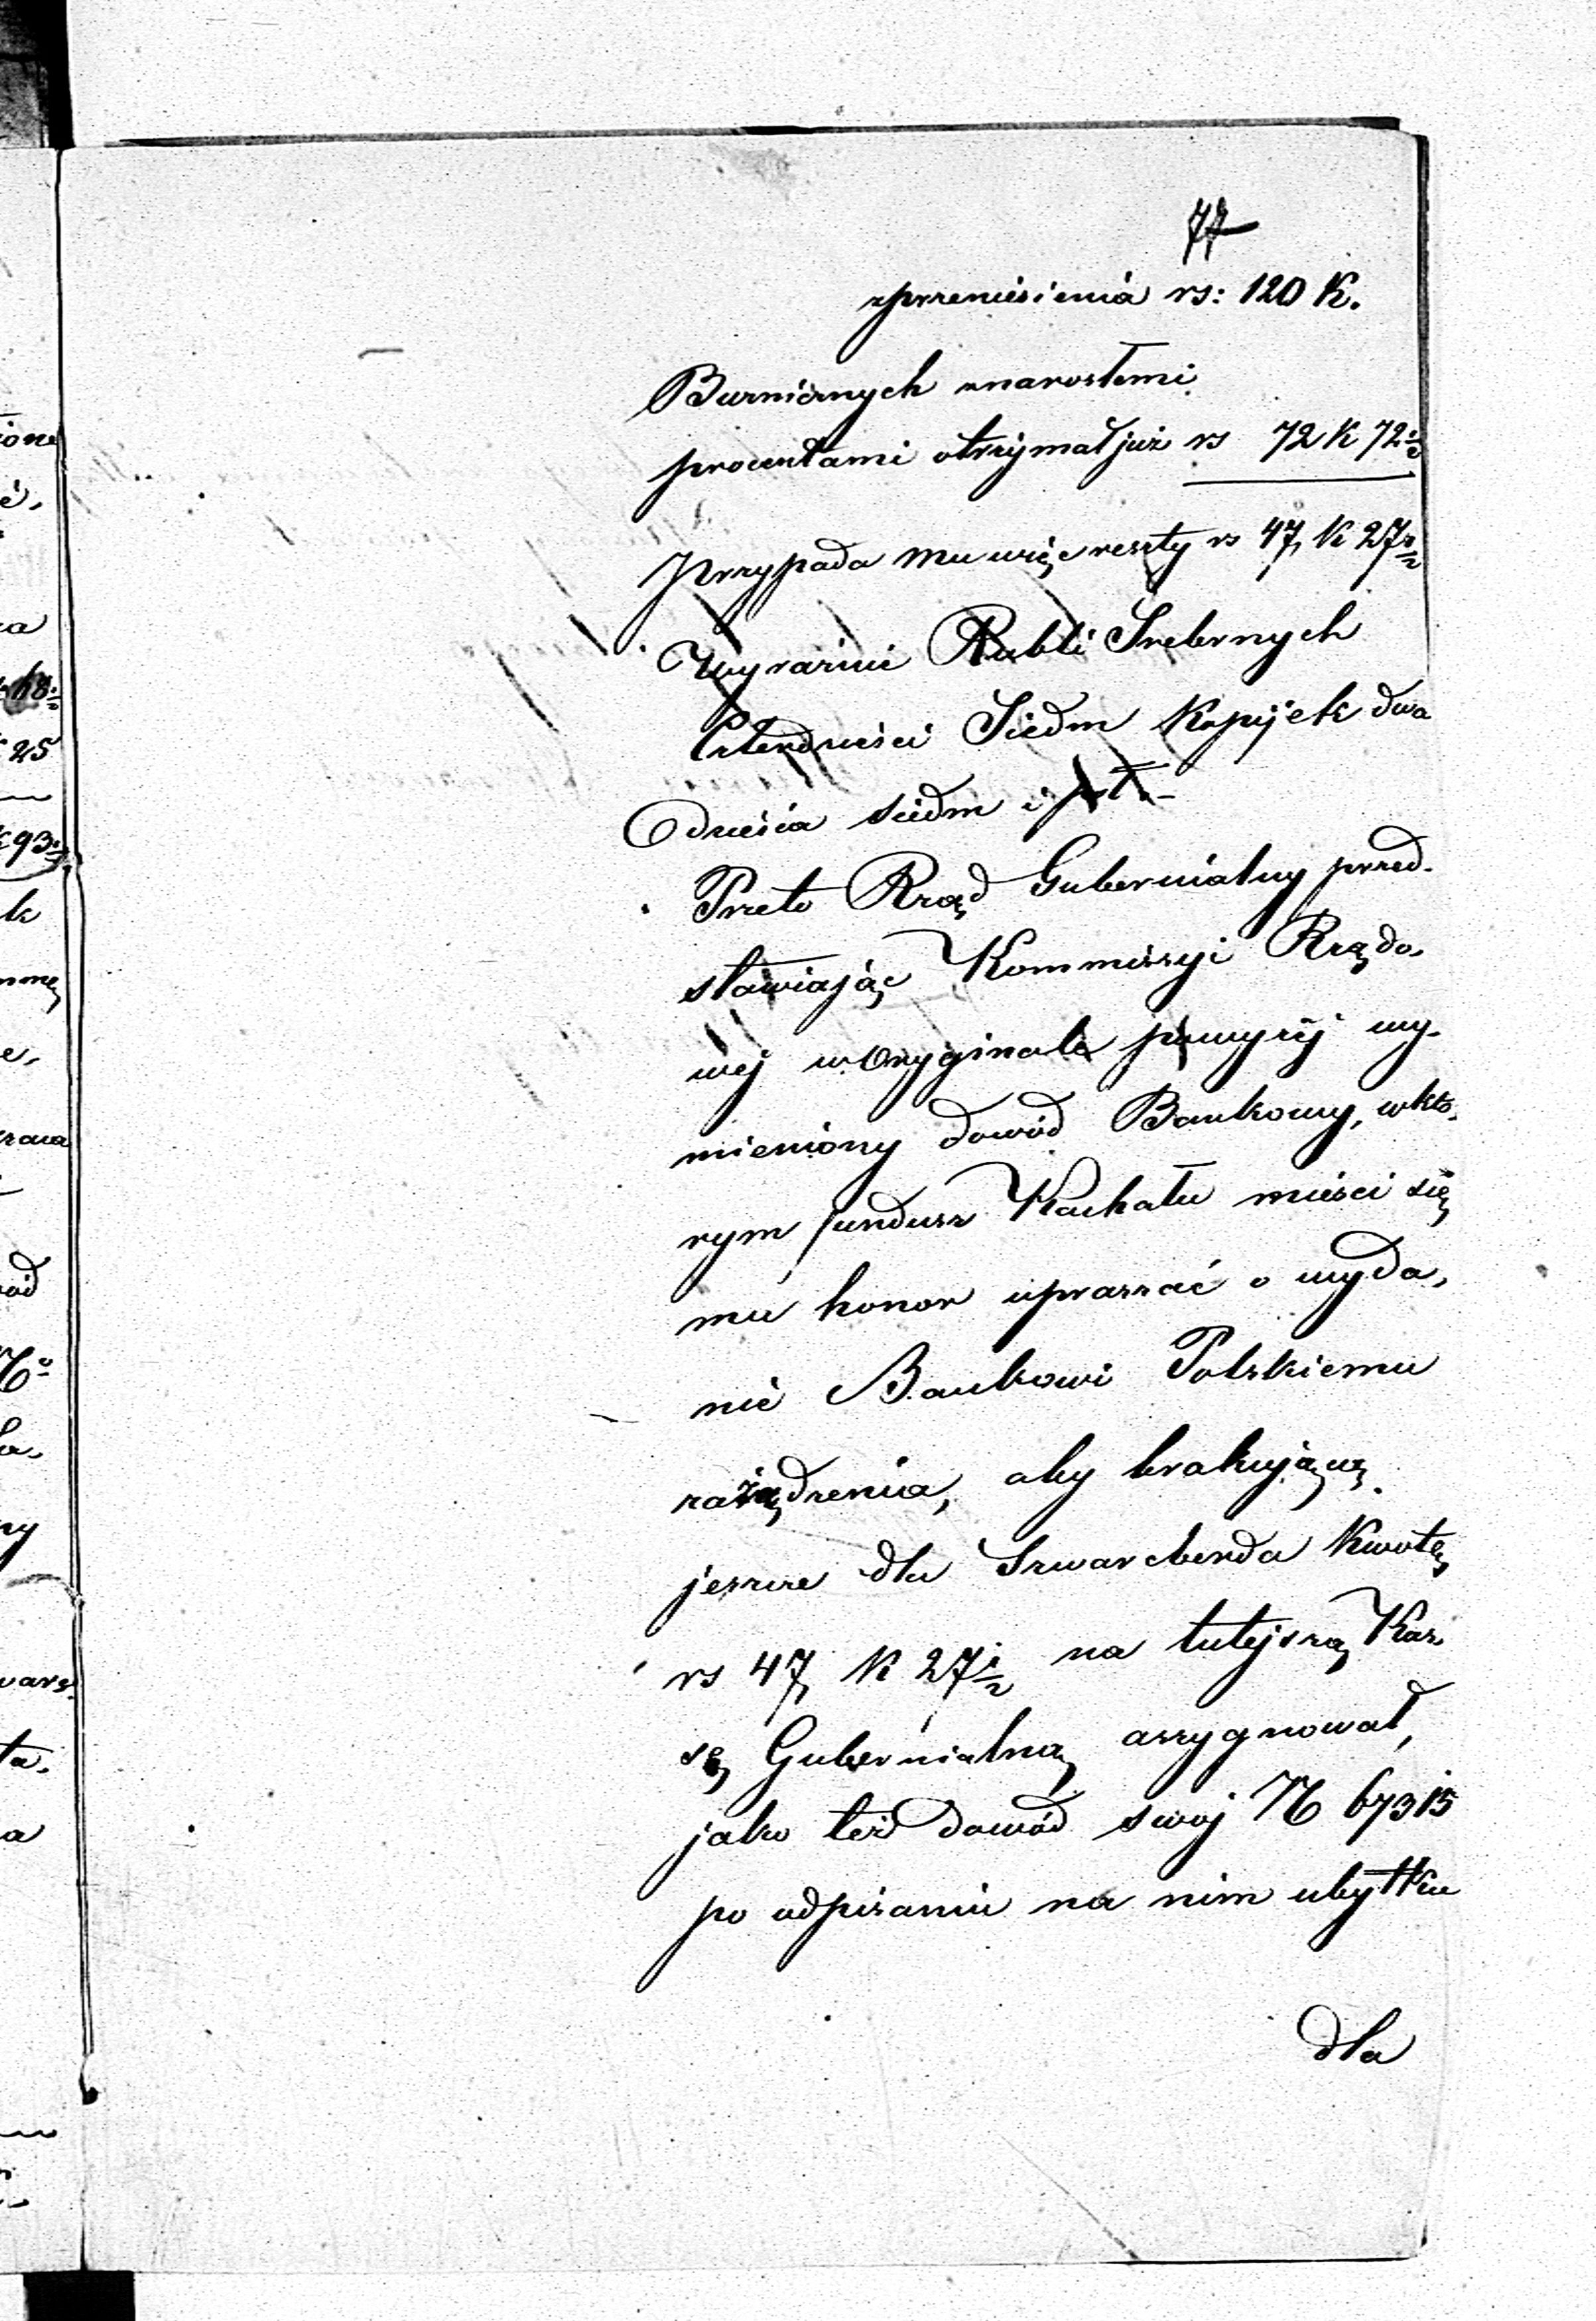 77
z przeniesienia rs: 120 K.
Burnicznych z narosłemi
procentami otrzymał już rs 72 K 72½
Przypada mu więc reszty rs 47 K 27½
Wyraźnie Rubli Srebrnych
Czterdzieści Siedm Kopijek dwa
dzieścia siedm i pół.-
Przeto Rząd Gubernialny przed-
stawiając Kommissyi Rządo-
wej w oryginale powyżej wy-
mieniony dowód Bankowy, w któ-
rym fundusz Kachału mieści się
ma honor upraszać o wyda-
nie Bankowi Polskiemu
zażądzenia, aby brakującą
jeszcze dla Szwarcberda Kwotę
rs 47 K 27½ na tutejszą Kas
sę Gubernialną assygnował,
jako też dowód swój No 67315
po odpisaniu na nim ubytku
dla
ione
ia
25
93
k
e,
wód
No
ny
wars
ta.
a